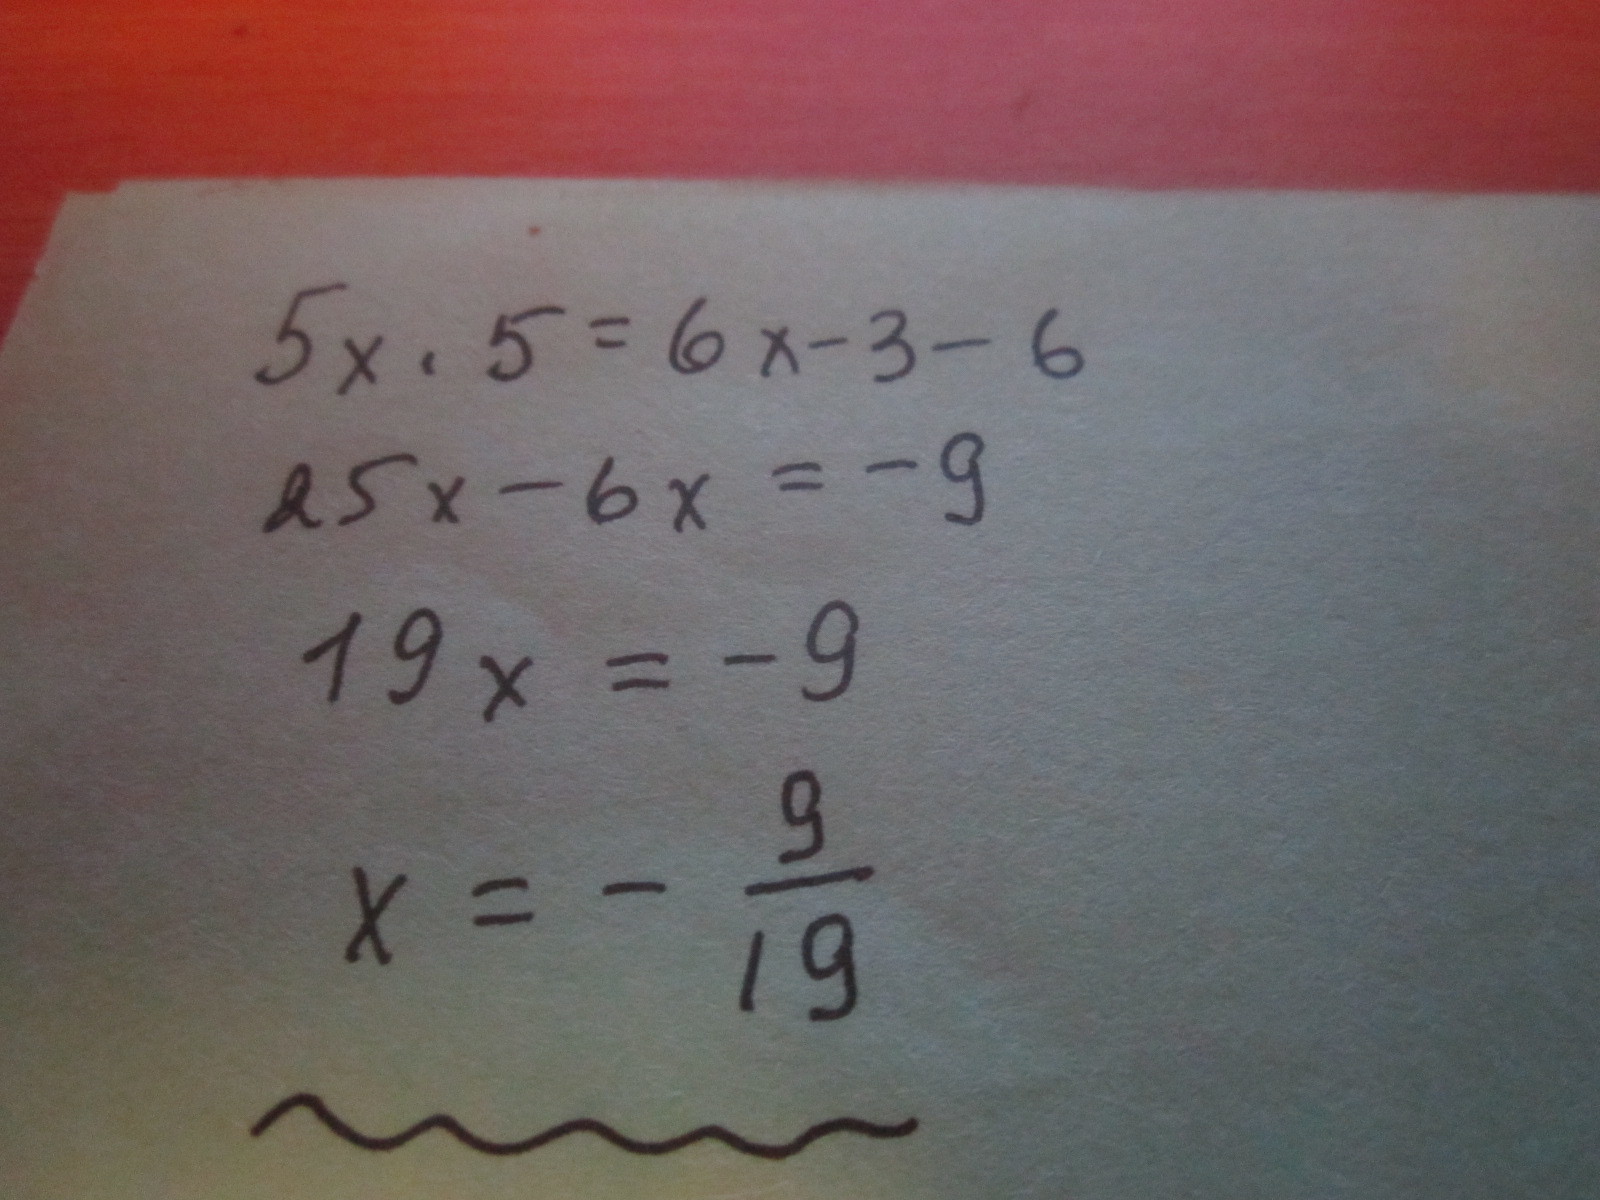 5x · 5 = 6x - 3 - 6
25x - 6x = -9
19x = -9
x = - 9/19